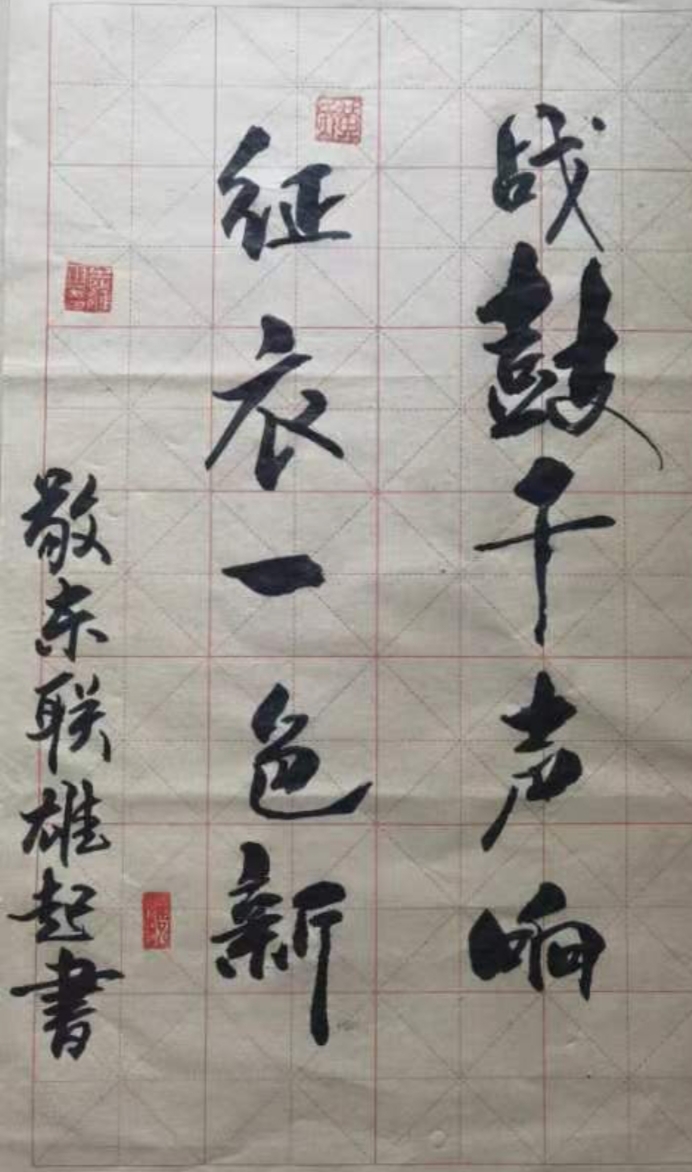 战鼓千声响
征衣一色新
敬东联雄起书